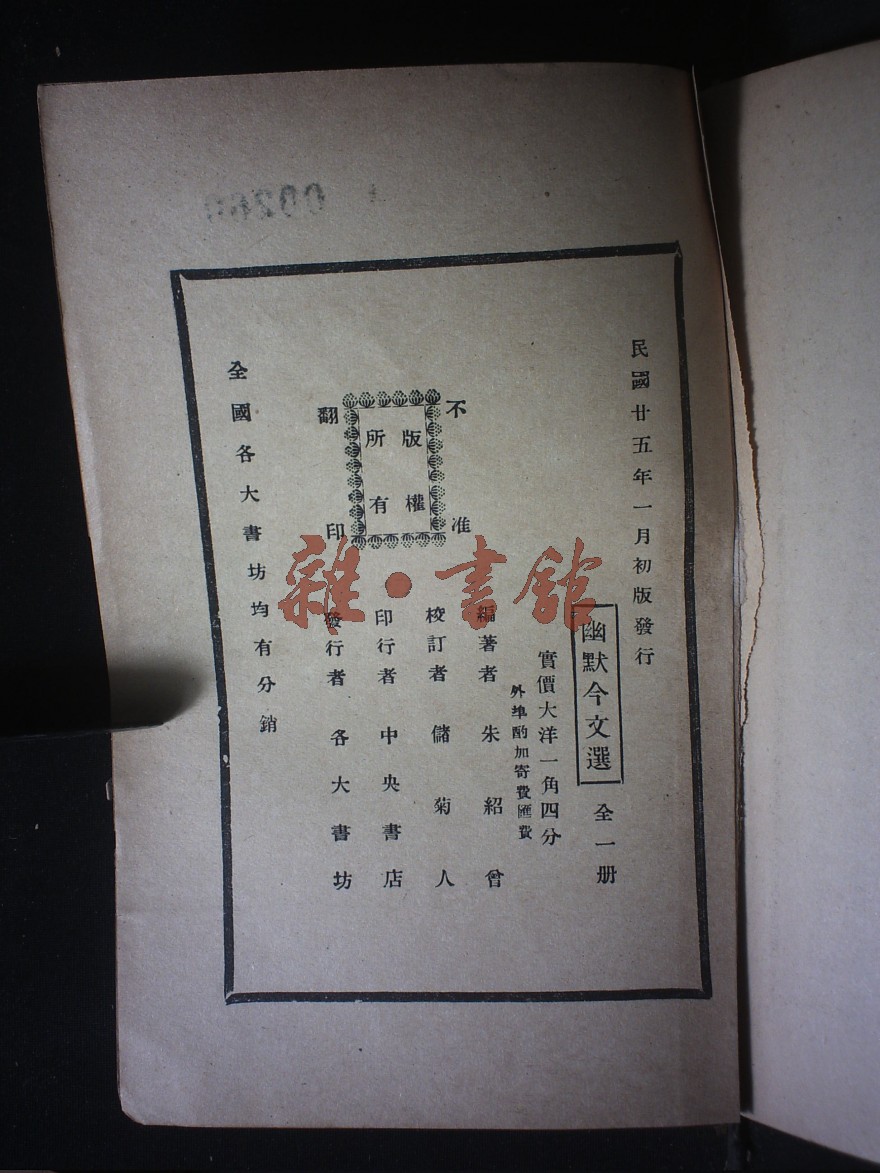 民國廿五年一月初版發行
幽默今文選 全一册
實價大洋一角四分
外埠酌加寄費匯費
不准
翻印
版權
所有
編著者 朱紹曾
校訂者 儲菊人
印行者 中央書店
發行者 各大書坊
全國各大書坊均有分銷
雜·書館